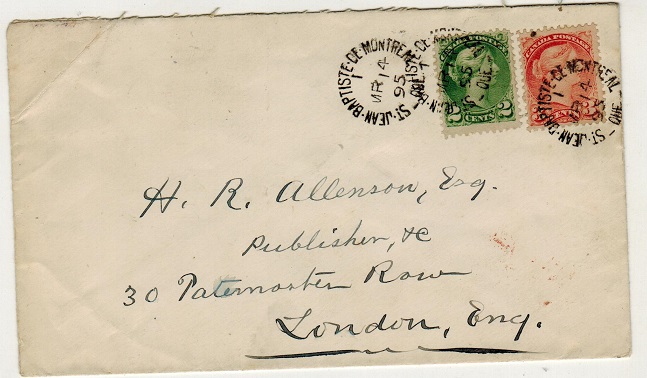 ST-JEAN-BAPTISTE-DE-MONTREAL - QUE -
1
MR 14
95
CANADA POSTAGE
2 CENTS 2
CANADA POSTAGE
CENTS
ST-JEAN-BAPTISTE-DE-MONTREAL - QUE -
1
MR 14
95
H. R. Allenson, Esq.
Publisher, &c
30 Paternoster Row
London, Eng.